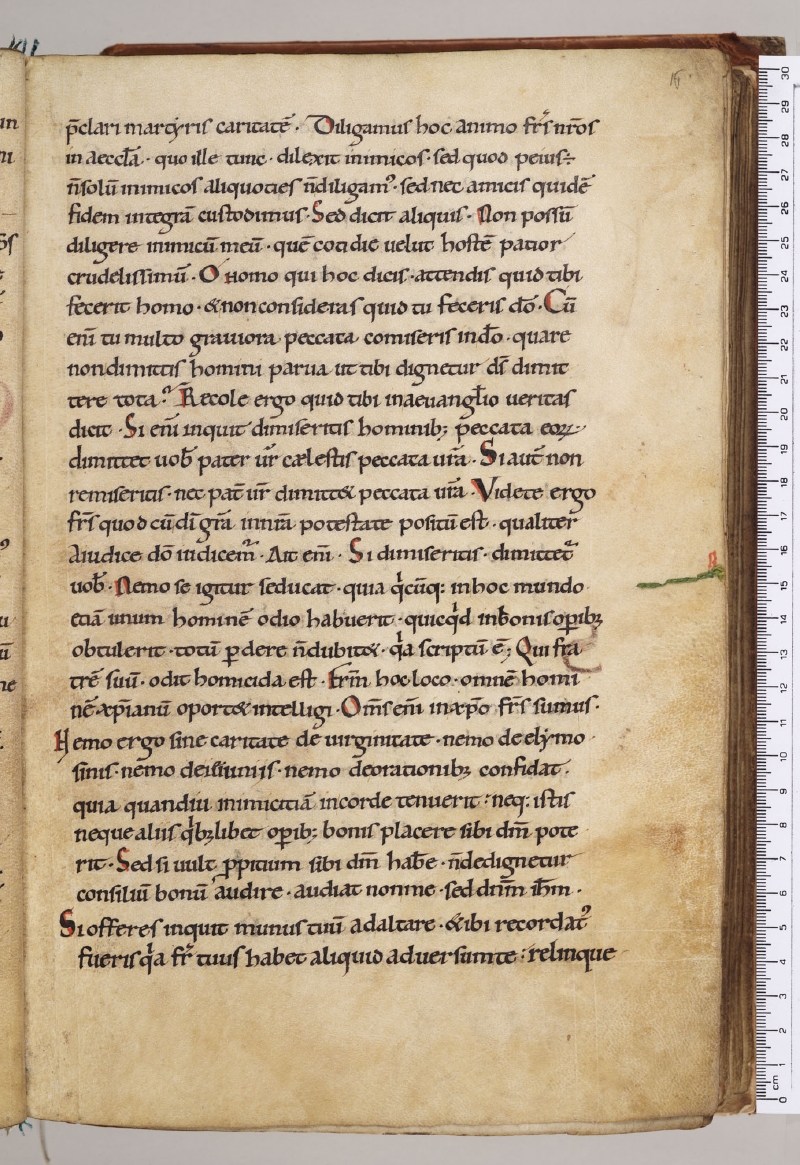 p̄clari martyris caritatē. Diligamus hoc animo fr̄s nr̄os
in aeccl̄a. quo ille tunc. dilexit inimicos. sed quod peius÷
n̄solū inimicos aliquoties n̄diligam᷒. sed nec amicis quidē
fidem integrā custodimus. Sed dicit aliquis. Non possū
diligere inimicū meū. quē cotidie velut hostē patior
crudelissimū. O homo qui hoc dicis. attendis quid tibi
fecerit homo. & non consideras quid tu feceris do͞. Cū
eni͞ tu multo grauiora peccata comiseris in do͞. quare
non dimittis homini parua ut tibi dignetur ds͞ dimit
tere tota? Recole ergo quid tibi in aeuangl̄io ueritas
dicit. Si eni͞ inquit dimiseritis hominib; peccata eoꝝ
dimittet uob̄ pater ur͞ cælestis peccata ur͞a. Si aut͞ non
remiseritis. nec pat͞ ur͞ dimitt& peccata ur͞a. Videte ergo
fr͞s quod cū di͞ gr͞a in nr͞a potestate positū est. qualiter
A iudice do͞ iudicem᷒. Ait eni͞. Si dimiseritis. dimittet᷒
uob̄. Nemo se igitur seducat. quia qͥcūq: in hoc mundo
etiā unum hominē odio habuerit. quicqͥd in bonis operib;
obtulerit. totū ꝑdere n̄dubit&. qͥa scriptū ē; Qui fra
trē suū. odit homicida est. Frm͞ hoc loco. omnē homi
nē xp͞ianū oport& intelligi. Om͞s eni͞ in xp͞o fr͞s sumus.
Nemo ergo sine caritate de uirginitate. nemo de elymo
sinis. nemo de ieiuniis. nemo de orationib; confidat.
quia quandiu inimicitiā in corde tenuerit. neq: istis
neque aliis qͥb;libet operib; bonis placere sibi dm͞ pote
rit. Sed si uult ꝓpitium sibi dm͞ habe͞. n̄ dedignetur
consiliū bonū audire. audiat non me. sed dnm͞ ihm͞.
Si offeres inquit munus tuū ad altare. & ibi recordat᷒
fueris qͥa fr͞ tuus habet aliquid aduersum te. relinque